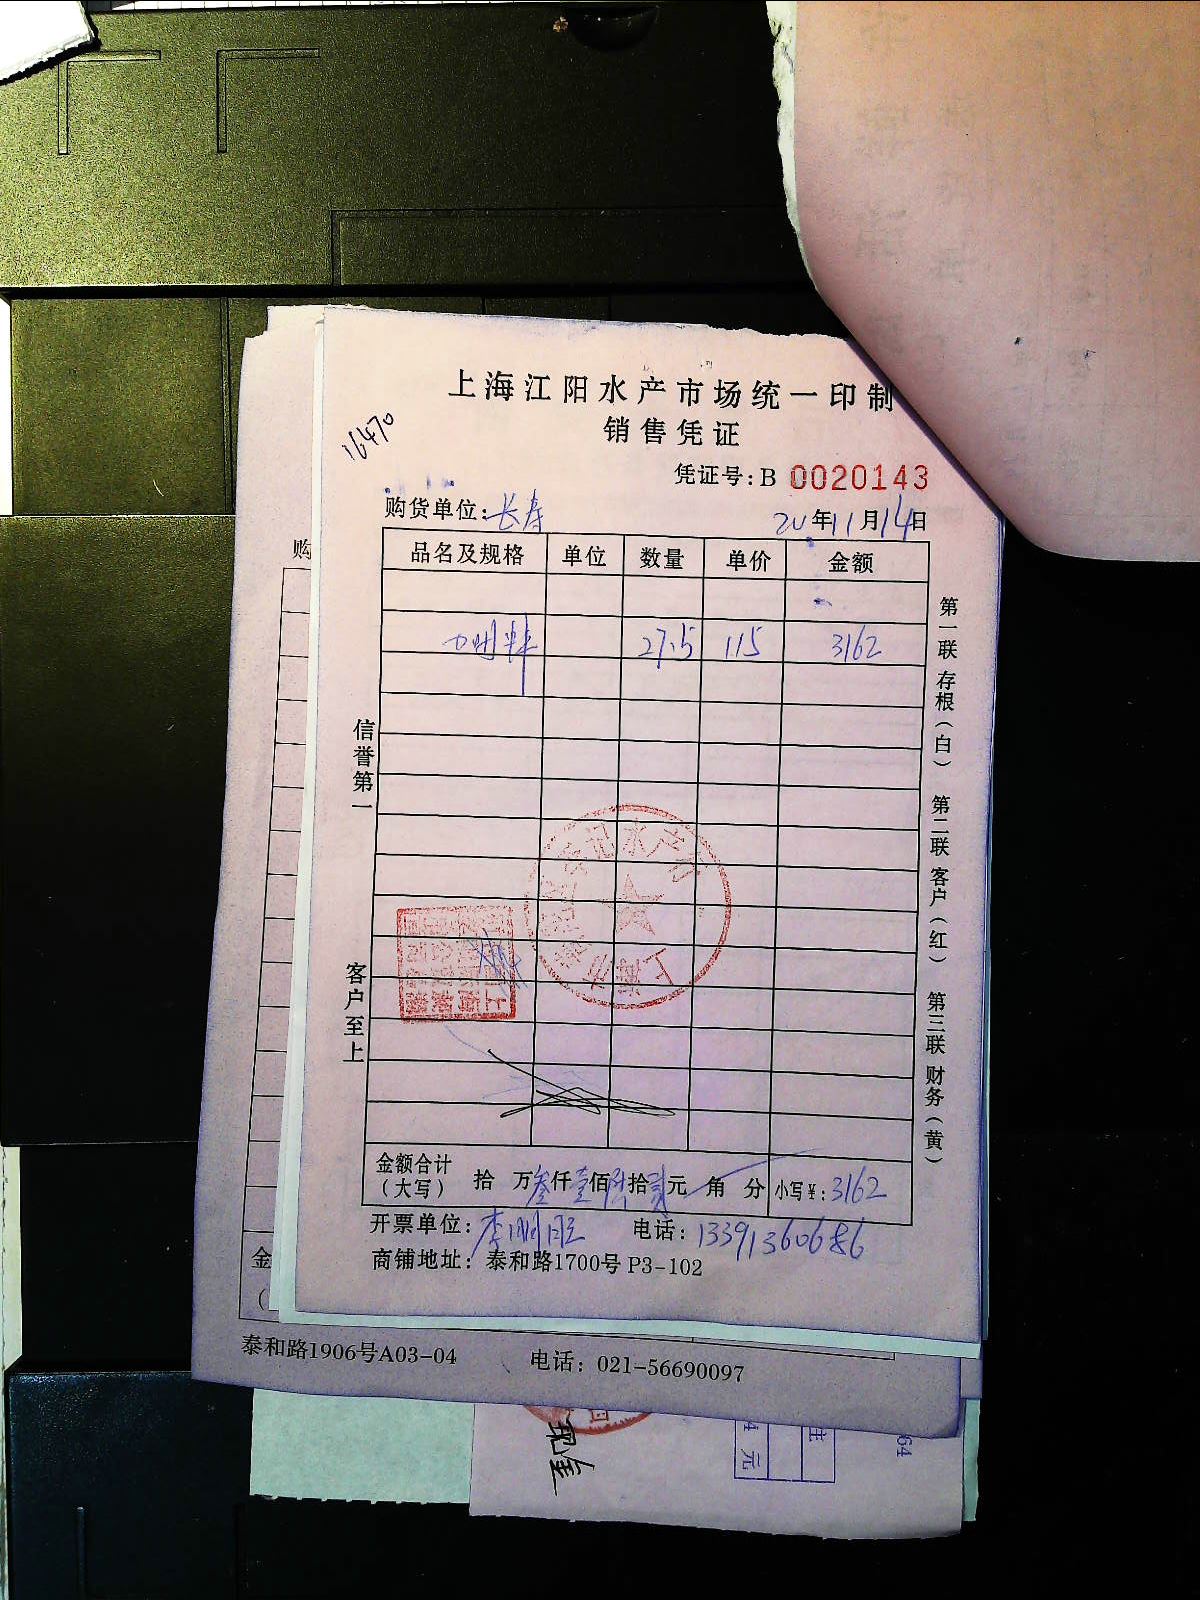 上海江阳水产市场统一印制
销售凭证
16470
凭证号:B 0020143
购货单位:长寿
20年11月14日
品名及规格 单位 数量 单价 金额
27.5 115 3162
信誉第一
客户至上
第一联存根(白) 第二联客户(红) 第三联财务(黄)
金额合计(大写) 拾 万叁仟壹佰陆拾贰元 角 分 小写¥:3162
开票单位:李 电话:13391360686
商铺地址:泰和路1700号 P3-102
购
金
(
泰和路1906号A03-04 电话:021-56690097
现金
元
64